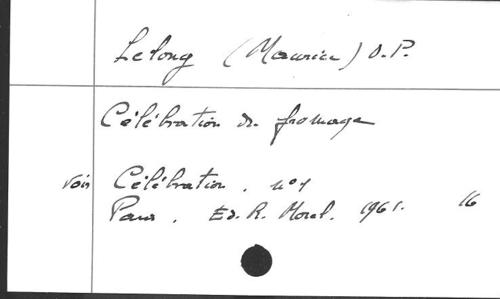 Lelong (Maurice) O.P.
Célébration du fromage
voir Célébration. n°1
Paris. Ed. R. Morel. 1961. 16